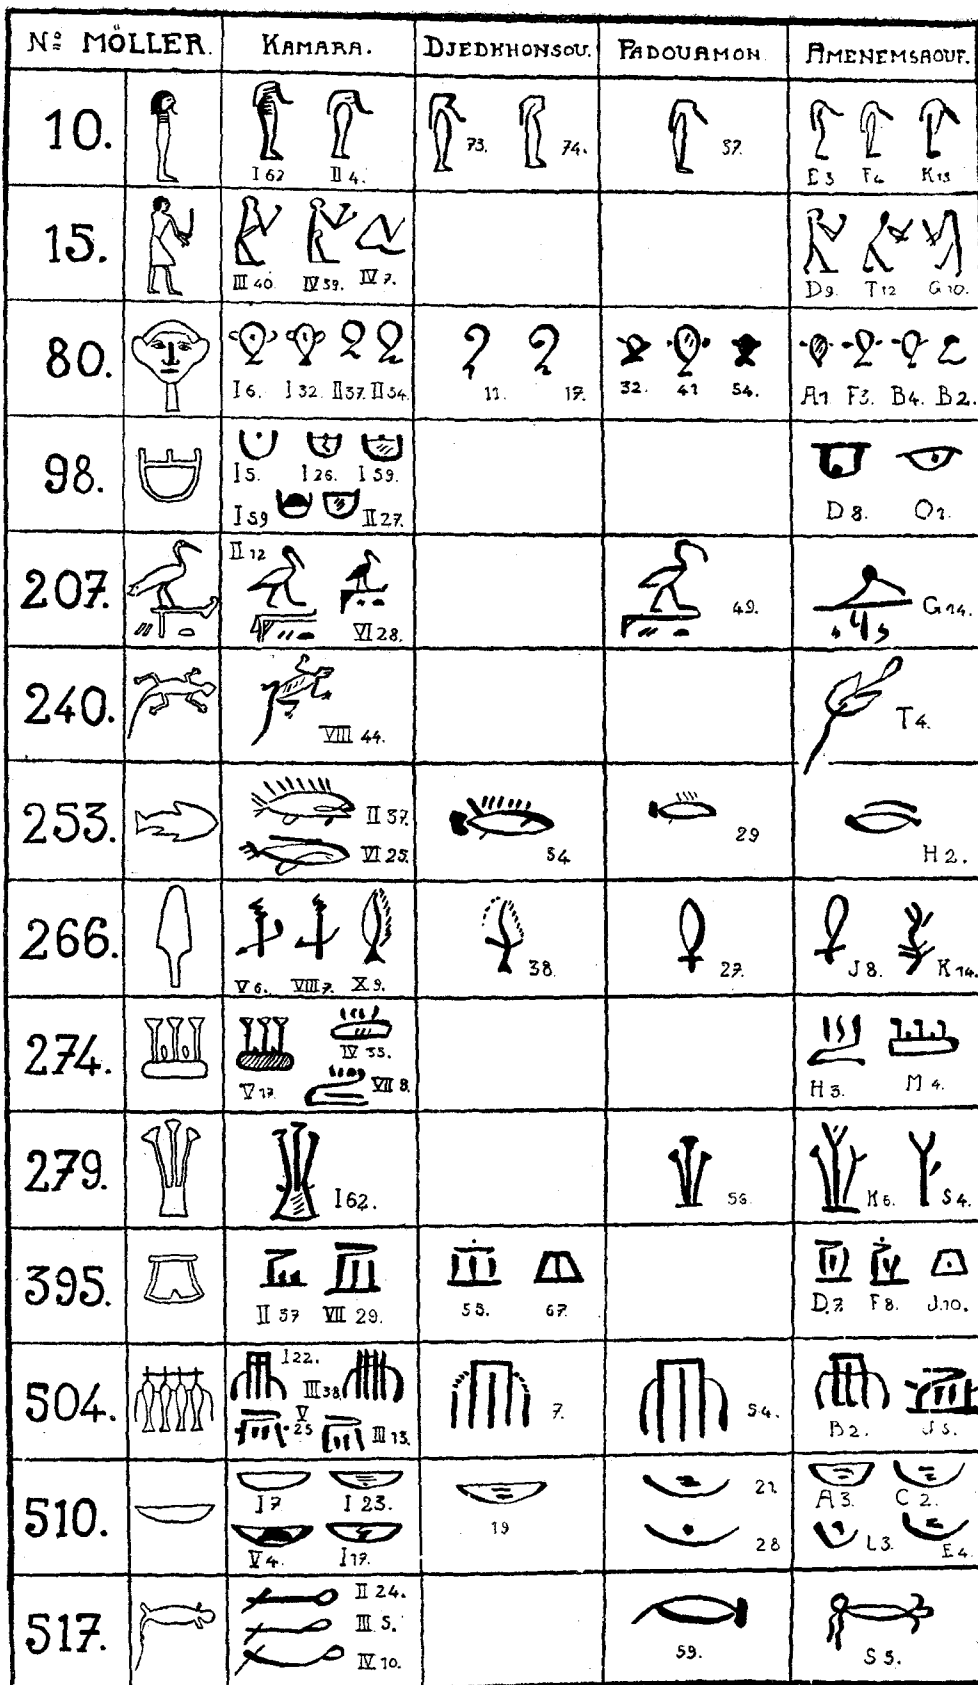 Nº MÖLLER. KAMARA. DJEDKHONSOU. PADOUAMON AMENEMSAOUF.
10. I 62 II 4. 73. 74. 37. E 3 F 4 K 13
15. III 40. IV 39. IV 7. D 9. T 12 G 10.
80. I 6. I 32. II 37. II 54. 11. 17. 32. 41 54. A 1 F 3. B 4. B 2.
98. I 5. I 26. I 59.
I 59 II 27. D 8. O 1.
207. II 12 VI 28. 49. G 14.
240. VIII 44. T 4.
253. II 37. VI 25. 54 29 H 2.
266. V 6. VIII 7. X 9. 38. 27. J 8. K 14.
274. V 17. IV 33. VII 8. H 3. M 4.
279. I 62. 56. K 6. S 4.
395. II 37 VII 29. 55. 67. D. 7. F 8. J. 10.
504. I 22. III 38. V 25 III 13. 7. 54. B 2. J 5.
510. I 7 I 23. V 4. I 17. 19 21 28 A 3. C 2. L 3. E 4.
517. II 24. III 5. IV 10. 59. S 5.